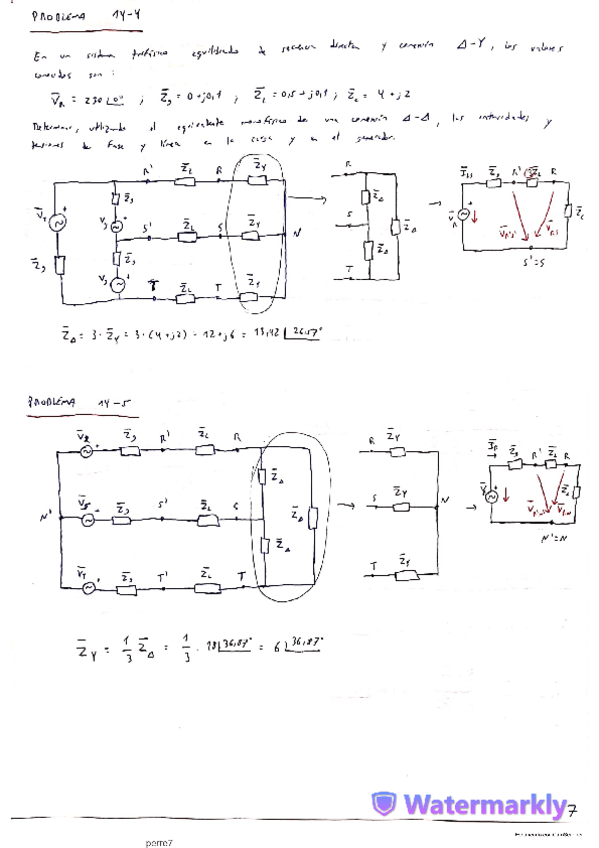 PROBLEMA 14-4
En un sistema trifásico equilibrado de secuencia directa y conexión Δ-Y, los valores
conocidos son:
V̄R = 230∠0° ; Z̄g = 0+j0,1 ; Z̄L = 0,5+j0,1 ; Z̄c = 4+j2
Determinar, utilizando el equivalente monofásico de una conexión Δ-Δ, las intensidades y
tensiones de fase y línea en la carga y en el generador.
R' Z̄L R Z̄Y
Z̄g
S' Z̄L S Z̄Y N
Z̄g
T Z̄L T Z̄Y
R
Z̄Δ
S
Z̄Δ
Z̄Δ
T
Z̄g R' 3Z̄L R
V̄R
S'=S
Z̄Δ = 3·Z̄Y = 3·(4+j2) = 12+j6 = 13,42∠26,57°
PROBLEMA 14-5
V̄R Z̄g R' Z̄L R
Z̄Δ
N' V̄S Z̄g S' Z̄L S
Z̄Δ
Z̄Δ
V̄T Z̄g T' Z̄L T
R Z̄Y
S Z̄Y N
T Z̄Y
Z̄g R' Z̄L R
N'=N
Z̄Y = 1/3 Z̄Δ = 1/3 · 18∠36,87° = 6∠36,87°
Watermarkly
7
perre7